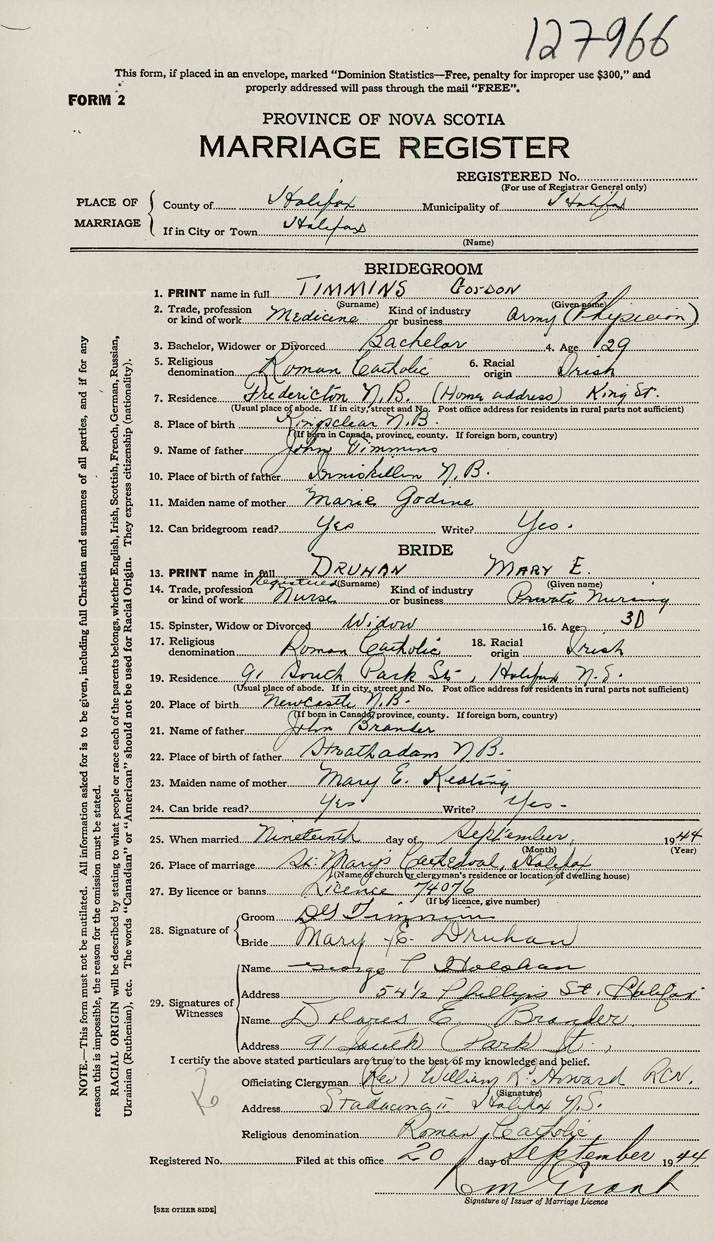 127966
This form, if placed in an envelope, marked "Dominion Statistics—Free, penalty for improper use $300," and
properly addressed will pass through the mail "FREE".
FORM 2
PROVINCE OF NOVA SCOTIA
MARRIAGE REGISTER
REGISTERED No.
(For use of Registrar General only)
PLACE OF MARRIAGE
County of Halifax Municipality of Halifax
If in City or Town Halifax
(Name)
BRIDEGROOM
1. PRINT name in full TIMMINS GORDON
(Surname) (Given name)
2. Trade, profession or kind of work Medicine Kind of industry or business Army (Physician)
3. Bachelor, Widower or Divorced Bachelor 4. Age 29
5. Religious denomination Roman Catholic 6. Racial origin Irish
7. Residence Fredericton N.B. (Home address) King St.
(Usual place of abode. If in city, street and No. Post office address for residents in rural parts not sufficient)
8. Place of birth Kingsclear N.B.
(If born in Canada, province, county. If foreign born, country)
9. Name of father John Timmins
10. Place of birth of father Inniskillin N.B.
11. Maiden name of mother Marie Godine
12. Can bridegroom read? Yes Write? Yes.
BRIDE
13. PRINT name in full DRUHAN MARY E.
(Surname) (Given name)
14. Trade, profession or kind of work Registered Nurse Kind of industry or business Private Nursing
15. Spinster, Widow or Divorced Widow 16. Age 30
17. Religious denomination Roman Catholic 18. Racial origin Irish
19. Residence 91 South Park St., Halifax N.S.
(Usual place of abode. If in city, street and No. Post office address for residents in rural parts not sufficient)
20. Place of birth Newcastle N.B.
(If born in Canada, province, county. If foreign born, country)
21. Name of father John Brander
22. Place of birth of father Strathadam N.B.
23. Maiden name of mother Mary E. Keating
24. Can bride read? Yes Write? Yes -
25. When married Nineteenth day of September, 1944
(Month) (Year)
26. Place of marriage St. Mary's Cathedral, Halifax
(Name of church or clergyman's residence or location of dwelling house)
27. By licence or banns Licence 74076
(If by licence, give number)
28. Signature of
Groom DG Timmins
Bride Mary E. Druhan
29. Signatures of Witnesses
Name George
Address 54½ Phillips St. Halifax
Name Dolores E. Brander
Address 91 South Park St.,
I certify the above stated particulars are true to the best of my knowledge and belief.
Officiating Clergyman (Rev) William R. Howard RCN.
(Signature)
Address Stadacona II Halifax N.S.
Religious denomination Roman Catholic
Registered No. Filed at this office 20 day of September 1944
Signature of Issuer of Marriage Licence
[SEE OTHER SIDE]
NOTE.—This form must not be mutilated. All information asked for is to be given, including full Christian and surnames of all parties, and if for any
reason this is impossible, the reason for the omission must be stated.
RACIAL ORIGIN will be described by stating to what people or race each of the parents belongs, whether English, Irish, Scottish, French, German, Russian,
Ukrainian (Ruthenian), etc. The words "Canadian" or "American" should not be used for Racial Origin. They express citizenship (nationality).